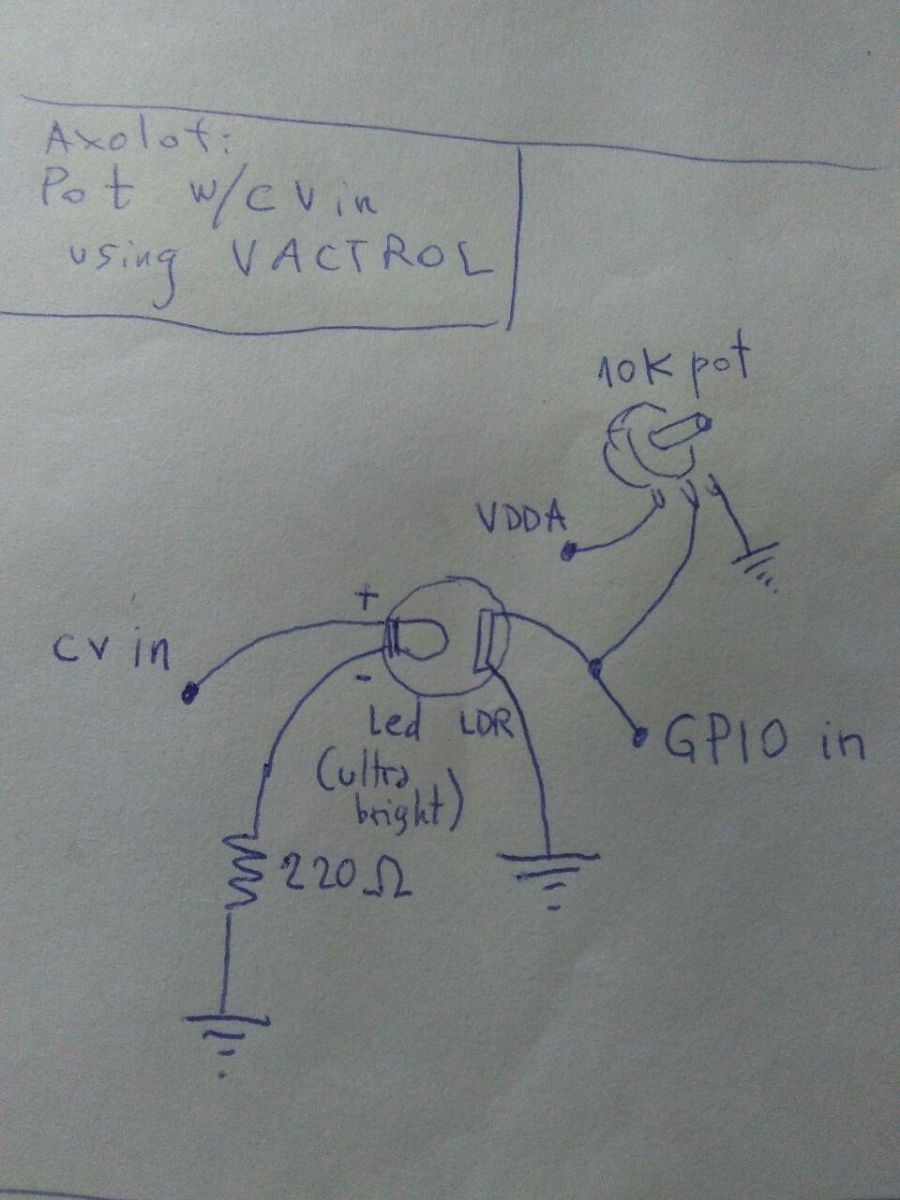 Axolot:
Pot w/CV in
using VACTROL
10K pot
VDDA
+
CV in
-
Led LDR
(ultra
bright)
GPIO in
220Ω